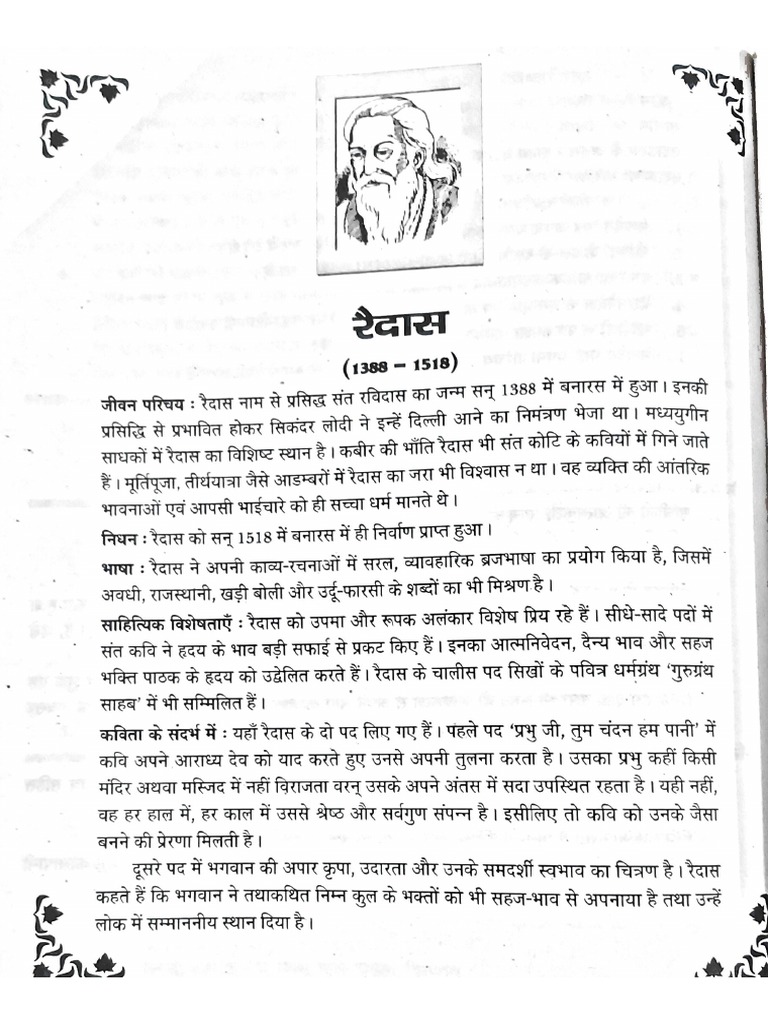 रैदास
(1388 – 1518)
जीवन परिचय : रैदास नाम से प्रसिद्ध संत रविदास का जन्म सन् 1388 में बनारस में हुआ। इनकी
प्रसिद्धि से प्रभावित होकर सिकंदर लोदी ने इन्हें दिल्ली आने का निमंत्रण भेजा था। मध्ययुगीन
साधकों में रैदास का विशिष्ट स्थान है। कबीर की भाँति रैदास भी संत कोटि के कवियों में गिने जाते
हैं। मूर्तिपूजा, तीर्थयात्रा जैसे आडम्बरों में रैदास का जरा भी विश्वास न था। वह व्यक्ति की आंतरिक
भावनाओं एवं आपसी भाईचारे को ही सच्चा धर्म मानते थे।
निधन : रैदास को सन् 1518 में बनारस में ही निर्वाण प्राप्त हुआ।
भाषा : रैदास ने अपनी काव्य-रचनाओं में सरल, व्यावहारिक ब्रजभाषा का प्रयोग किया है, जिसमें
अवधी, राजस्थानी, खड़ी बोली और उर्दू-फारसी के शब्दों का भी मिश्रण है।
साहित्यिक विशेषताएँ : रैदास को उपमा और रूपक अलंकार विशेष प्रिय रहे हैं। सीधे-सादे पदों में
संत कवि ने हृदय के भाव बड़ी सफाई से प्रकट किए हैं। इनका आत्मनिवेदन, दैन्य भाव और सहज
भक्ति पाठक के हृदय को उद्वेलित करते हैं। रैदास के चालीस पद सिखों के पवित्र धर्मग्रंथ ‘गुरुग्रंथ
साहब’ में भी सम्मिलित हैं।
कविता के संदर्भ में : यहाँ रैदास के दो पद लिए गए हैं। पहले पद ‘प्रभु जी, तुम चंदन हम पानी’ में
कवि अपने आराध्य देव को याद करते हुए उनसे अपनी तुलना करता है। उसका प्रभु कहीं किसी
मंदिर अथवा मस्जिद में नहीं विराजता वरन् उसके अपने अंतस में सदा उपस्थित रहता है। यही नहीं,
वह हर हाल में, हर काल में उससे श्रेष्ठ और सर्वगुण संपन्न है। इसीलिए तो कवि को उनके जैसा
बनने की प्रेरणा मिलती है।
दूसरे पद में भगवान की अपार कृपा, उदारता और उनके समदर्शी स्वभाव का चित्रण है। रैदास
कहते हैं कि भगवान ने तथाकथित निम्न कुल के भक्तों को भी सहज-भाव से अपनाया है तथा उन्हें
लोक में सम्माननीय स्थान दिया है।